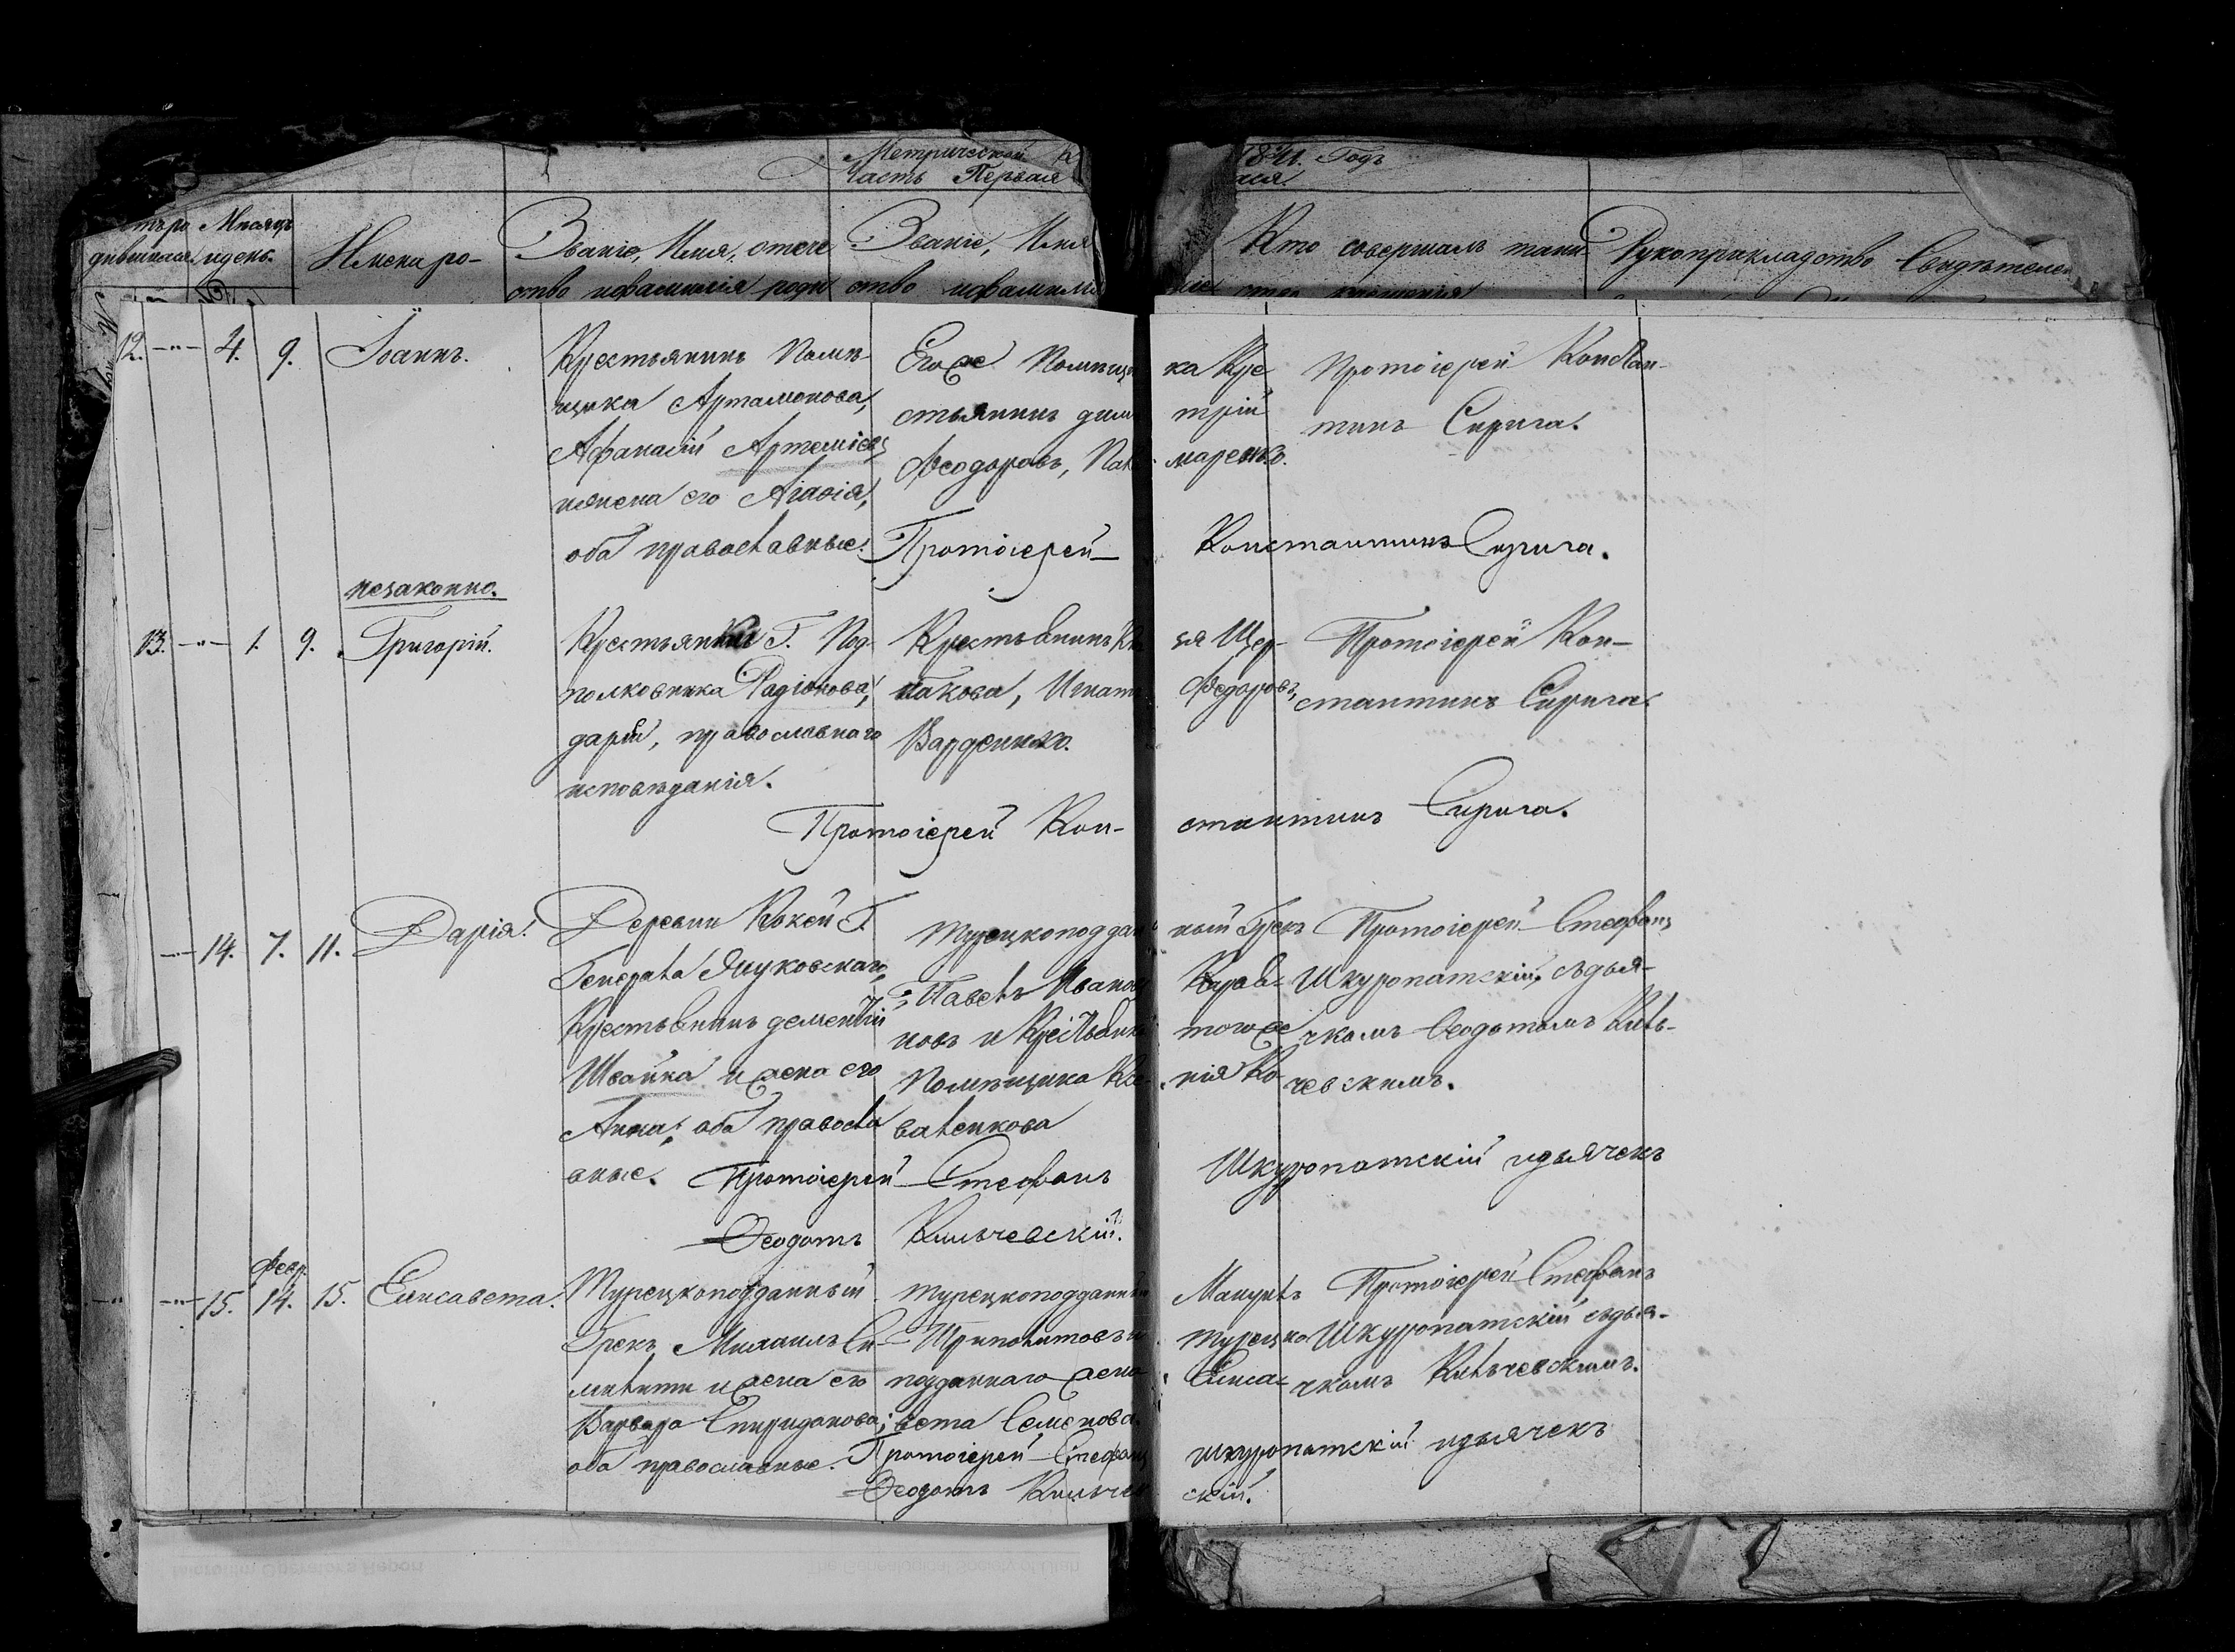 Метрической
Часть Первая
1841. Годъ
Месяцъ
и день.
Имена ро-
Званіе, Имя, отече
ство и фамилія роди
Званіе, Имя
ство и фамилія
Кто совершалъ таин-
Рукоприкладство Свидѣтелей
12. -"- 4. 9. Іоаннъ.
Крестьянинъ Помѣ-
щика Артамонова,
Афанасій Артеміевъ
и жена его Агафія,
оба православные.
Егоже Помѣщи
ка Кре
стьянинъ дими
трій
Феодоровъ,
Протоіерей Констан-
тинъ Сирига.
Протоіерей Константинъ Сирига.
незаконно.
13. -"- 1. 9. Григорій.
Г. Под-
полковника Радіонова,
дарія, православнаго
исповѣданія.
Крестьянинъ
Щер-
бакова, Игнатъ
Федоровъ,
Протоіерей Кон-
стантинъ Сирига.
Протоіерей Кон-
стантинъ Сирига.
-"- 14. 7. 11. Дарія.
Деревни Г.
Генерала
Крестьянинъ дементій
Швайка и жена его
Анна; оба правосла
вные.
Турецкоподдан
ный Грекъ
Павелъ Иванов
новъ и
тогоже
Помѣщика
Протоіерей Стефанъ
Шкуропатскій, съ дья-
чкомъ Феодотомъ Киль-
чевскимъ.
Протоіерей Стефанъ Шкуропатскій и дьячекъ
Феодотъ Кильчевскій.
Февр.
-"- 15. 14. 15. Елисавета.
Турецкоподданный
Грекъ Михаилъ
и жена его
Варвара Спиридонова;
оба православные.
турецкоподданный
турецко
подданнаго жена
Елиса-
вета Семенова.
Протоіерей Стефанъ
Шкуропатскій съ дья-
чкомъ Кильчевскимъ.
Протоіерей Стефанъ Шкуропатскій и дьячекъ
Феодотъ Кильчевскій.